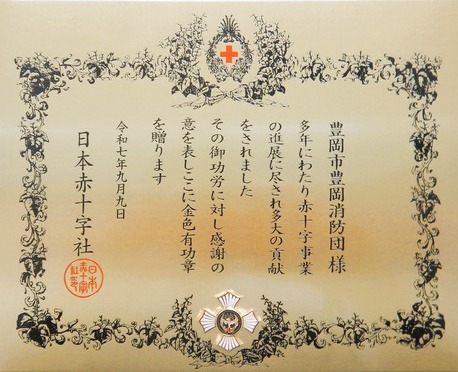 豊岡市豊岡消防団様
多年にわたり赤十字事業
の進展に尽され多大の貢献
をされました
その御功労に対し感謝の
意を表しここに金色有功章
を贈ります
令和七年九月九日
日本赤十字社
日本
赤十字
社印